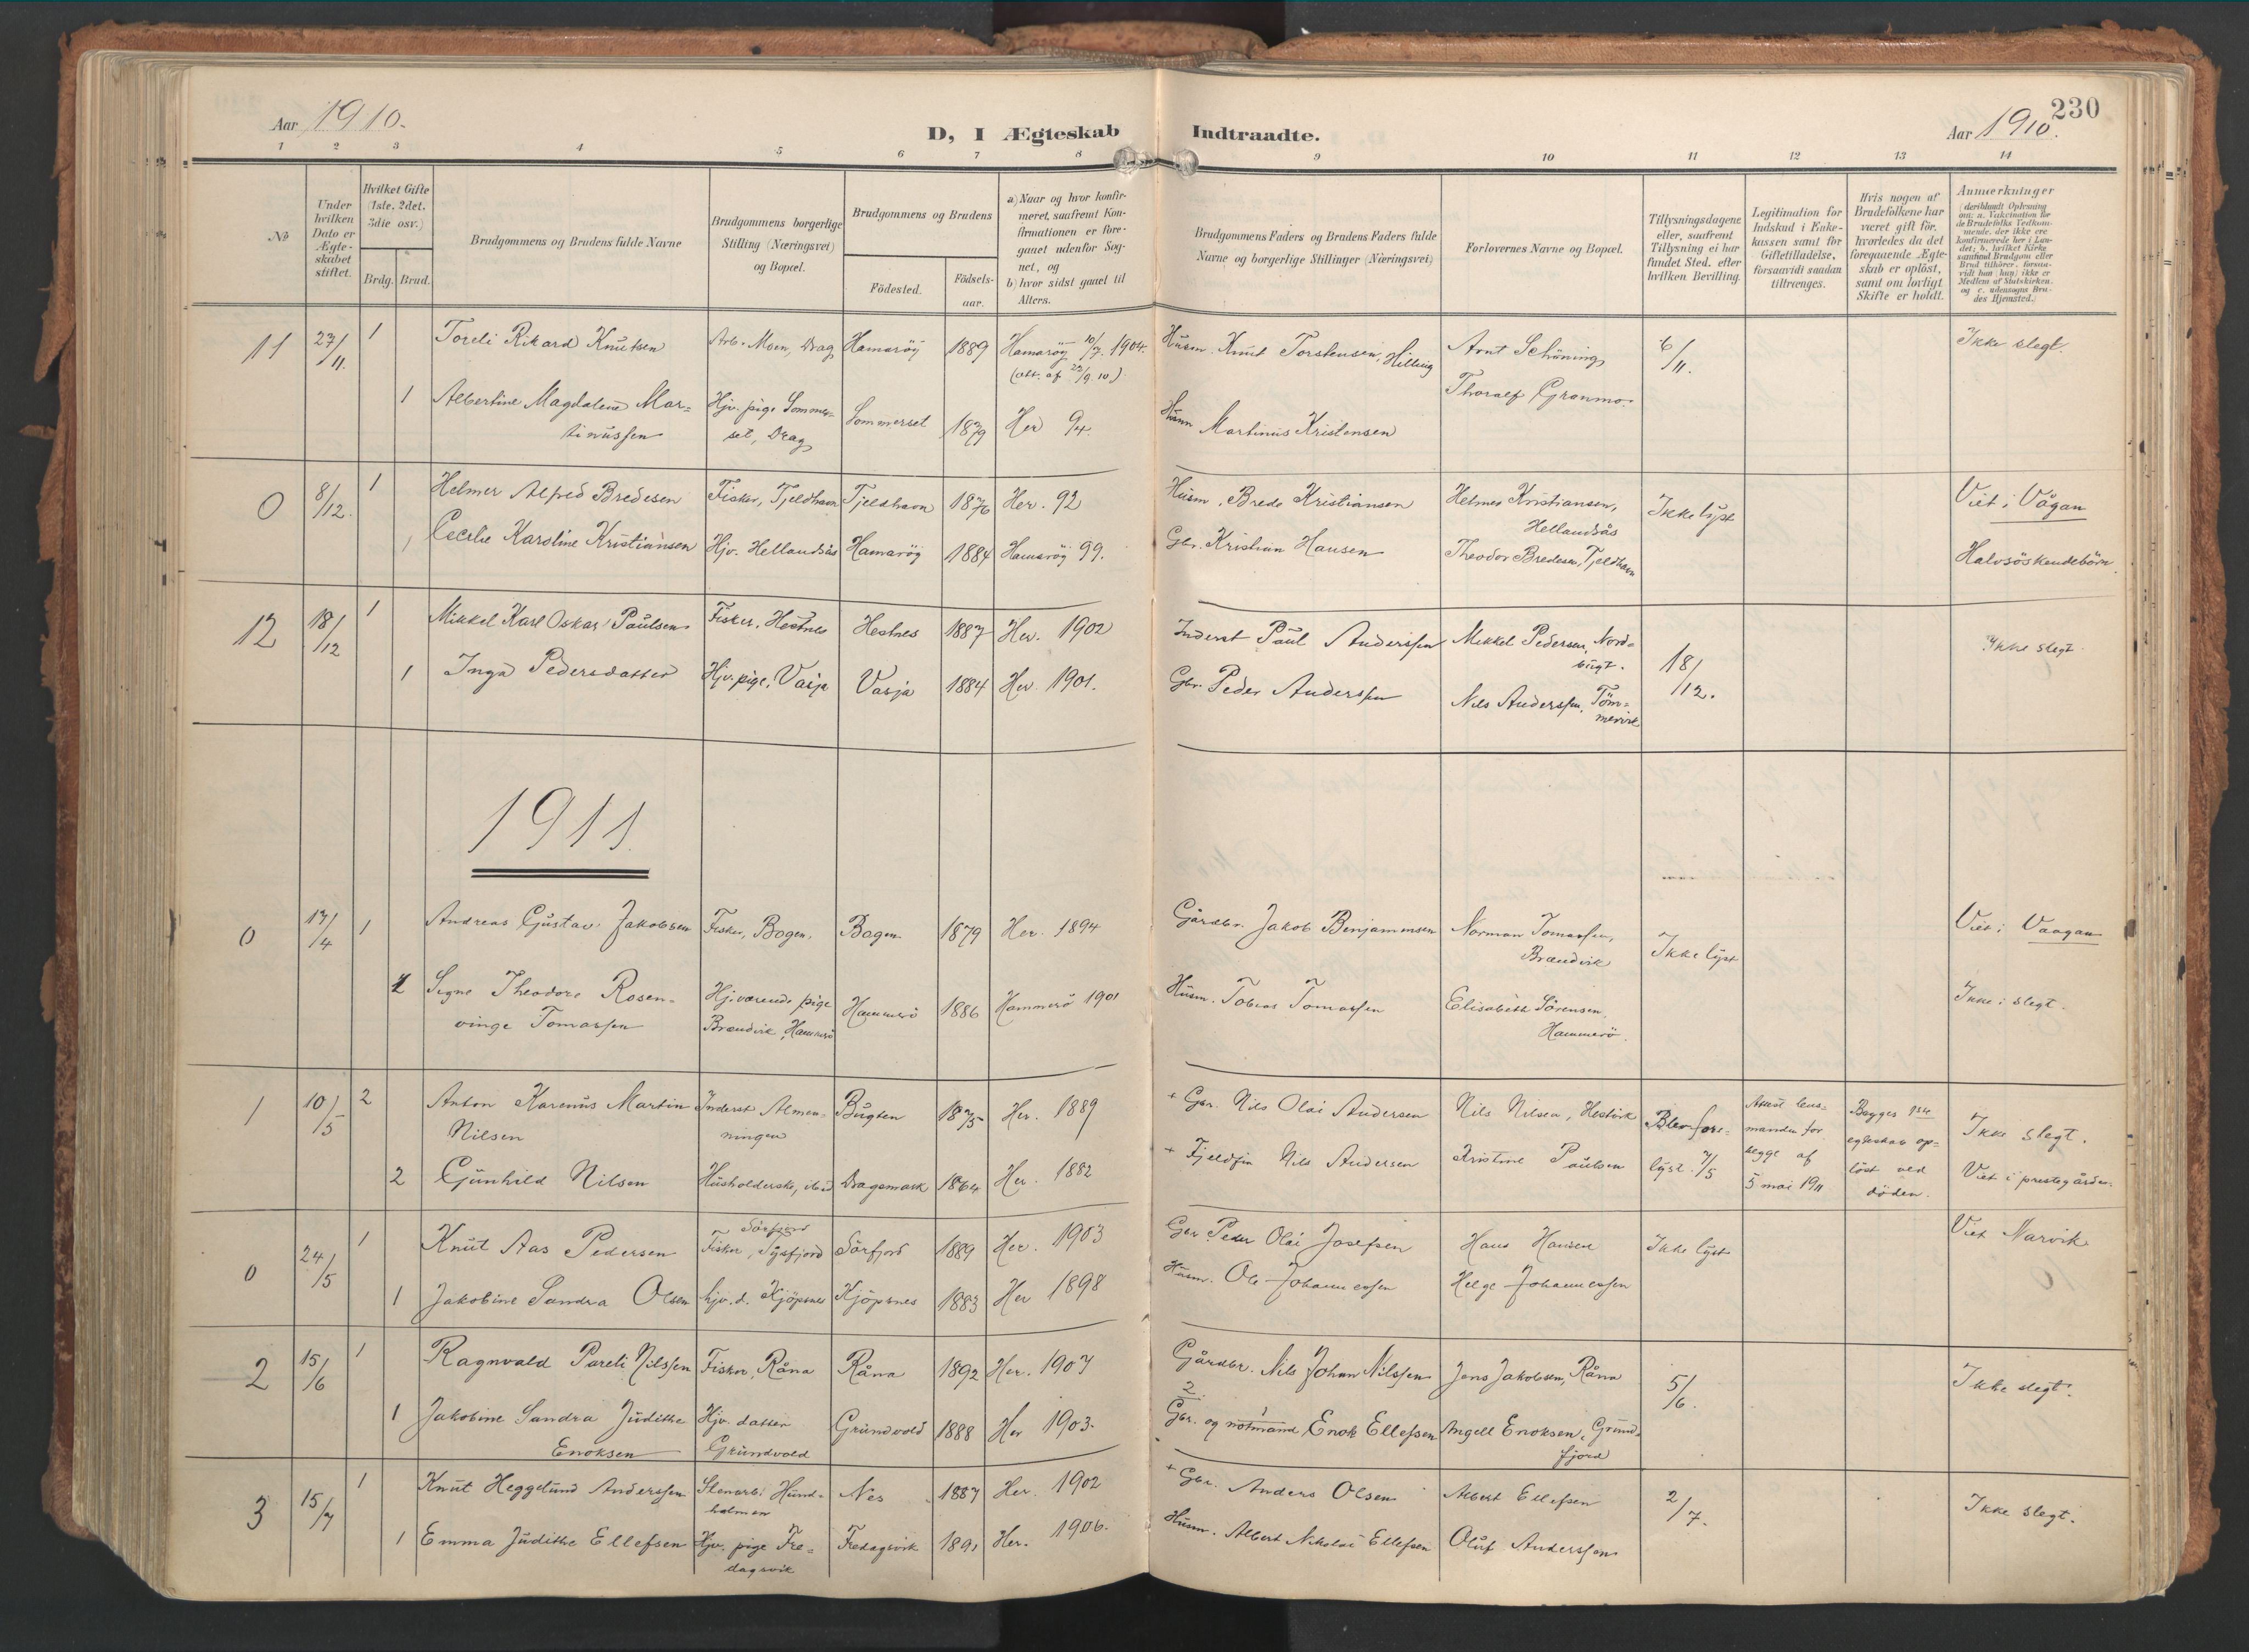 230
Aar 1910.
D, I Ægteskab Indtraadte.
Aar 1910.
1 2 3 4 5 6 7 8 9 10 11 12 13 14
No
Under hvilken Dato er Ægteskabet stiftet.
Hvilket Gifte (1ste, 2det, 3die osv.)
Brdg. Brud.
Brudgommens og Brudens fulde Navne
Brudgommens borgerlige Stilling (Næringsvei) og Bopæl.
Brudgommens og Brudens
Födested.
Födsels-aar.
a) Naar og hvor konfir-
meret, saafremt Kon-
firmationen er fore-
gaaet udenfor Sog-
net, og
b) hvor sidst gaaet til
Alters.
Brudgommens Faders og Brudens Faders fulde
Navne og borgerlige Stillinger (Næringsvei)
Forlovernes Navne og Bopæl.
Tillysningsdagene
eller, saafremt
Tillysning ei har
fundet Sted, efter
hvilken Bevilling.
Legitimation for
Indskud i Enke-
kassen samt for
Giftetilladelse,
forsaavidt saadan
tiltrænges.
Hvis nogen af
Brudefolkene har
været gift för,
hvorledes da det
foregaaende Ægte-
skab er oplöst,
samt om lovligt
Skifte er holdt.
Anmærkninger
(deriblandt Oplysning
om: a. Vakcination for
de Brudefolks Vedkom-
mende, der ikke ere
konfirmerede her i Lan-
det; b. hvilket Kirke-
samfund Brudgom eller
Brud tilhörer, forsaa-
vidt han (hun) ikke er
Medlem af Statskirken,
og c. udensogns Bru-
des Hjemsted.)
11 27/11. 1 Toreli Rikard Knutsen Arb. Moen, Drag Hamaröy 1889 Hamaröy 10/7. 1904. Husm. Knut Torstensen, Arnt Schöning 6/11. Ikke slegt.
(att. af 22/9.10)
1 Albertine Magdalene Mar=
tinussen Hjv. pige Sommer=
set, Drag Sommerset 1879 Her 94. Husm Martinus Kristensen Thoralf Grønmo.
0 8/12. 1 Helmer Alfred Bredesen Fisker, Tjeldhavn Tjeldhavn 1876 Her. 92 Husm. Brede Kristiansen Helmer Kristiansen,
Hellandsås Ikke lyst Viet i Vågan
1 Cecilie Karoline Kristiansen Hjv. Hellandsås Hamaröy 1884 Hamaröy 99. Gbr. Kristian Hansen Theodor Bredesen, Tjeldhavn Halvsöskendebörn.
12 18/12 1 Mikkel Karl Oskar Paulsen Fisker, Hestnes Hestnes 1887 Her. 1902 Inderst Paul Anderssen Mikkel Pedersen, Nord=
bugt. 18/12. Ikke slegt.
1 Inga Pedersdatter Hjv. pige, Vasja Vasja 1884 Her. 1901. Gbr. Peder Anderssen Nils Anderssen, Töm=
mervik
1911.
0 17/4 1 Andreas Gustav Jakobsen Fisker, Bogen. Bogen 1879 Her. 1894 Gårdbr. Jakob Benjaminsen Norman Tomassen,
Brændvik Ikke lyst Viet i Vaagan
1 Signe Theodore Rosen-
vinge Tomassen Hjværende pige
Brændvik, Hammerö Hammerö 1886 Hammerö 1901 Husm. Tobias Tomassen Elisabeth Sörensen,
Hammerö. Ikke i slegt.
1 10/5 2 Anton Karenus Martin
Nilsen Inderst Almen-
ningen Bugten 1875 Her. 1889 + Gbr. Nils Olai Andersen Nils Nilsen, Hestvik Blev fore=
lyst 7/5 Attest lens=
manden for
begge af
5 mai 1911 Begges 1ste
egteskab op=
löst ved
döden. Ikke slegt.
Viet i prestegården.
2 Gunhild Nilsen Husholderske, ibid Dragsmark 1864 Her. 1882 + Fjeldfin Nils Andersen Kristine Paulsen
0 24/5 1 Knut Aas Pedersen Sörfjord
Fisker, Tysfjord Sörfjord 1889 Her. 1903 Gbr. Peder Olai Josefsen Hans Hansen Ikke lyst Viet Narvik
1 Jakobine Sandra Olsen hjv. d. Kjöpsnes Kjöpsnes 1883 Her 1898 Husm. Ole Johannessen Helge Johannessen
2 15/6 1 Ragnvald Pareli Nilssen Fisker, Råna Råna 1892 Her. 1907 Gårdbr. Nils Johan Nilssen Jens Jakobsen, Råna 5/6. Ikke slegt.
1 Jakobine Sandra Judithe
Enoksen Hjv. datter
Grundvold Grundvold 1888 Her 1903. Gbr. og notmand Enok Ellefsen Angell Enoksen, Grund-
fjord
3 15/7 1 Knut Heggelund Anderssen Stenarb. Hund-
holmen Nes 1887 Her. 1902 + Gbr. Anders Olsen Albert Ellefsen 2/7. Ikke slegt.
1 Emma Judithe Ellefsen Hjv. pige Fre=
dagsvik Fredagsvik 1891 Her. 1906. Husm. Albert Nikolai Ellefsen Oluf Anderssen